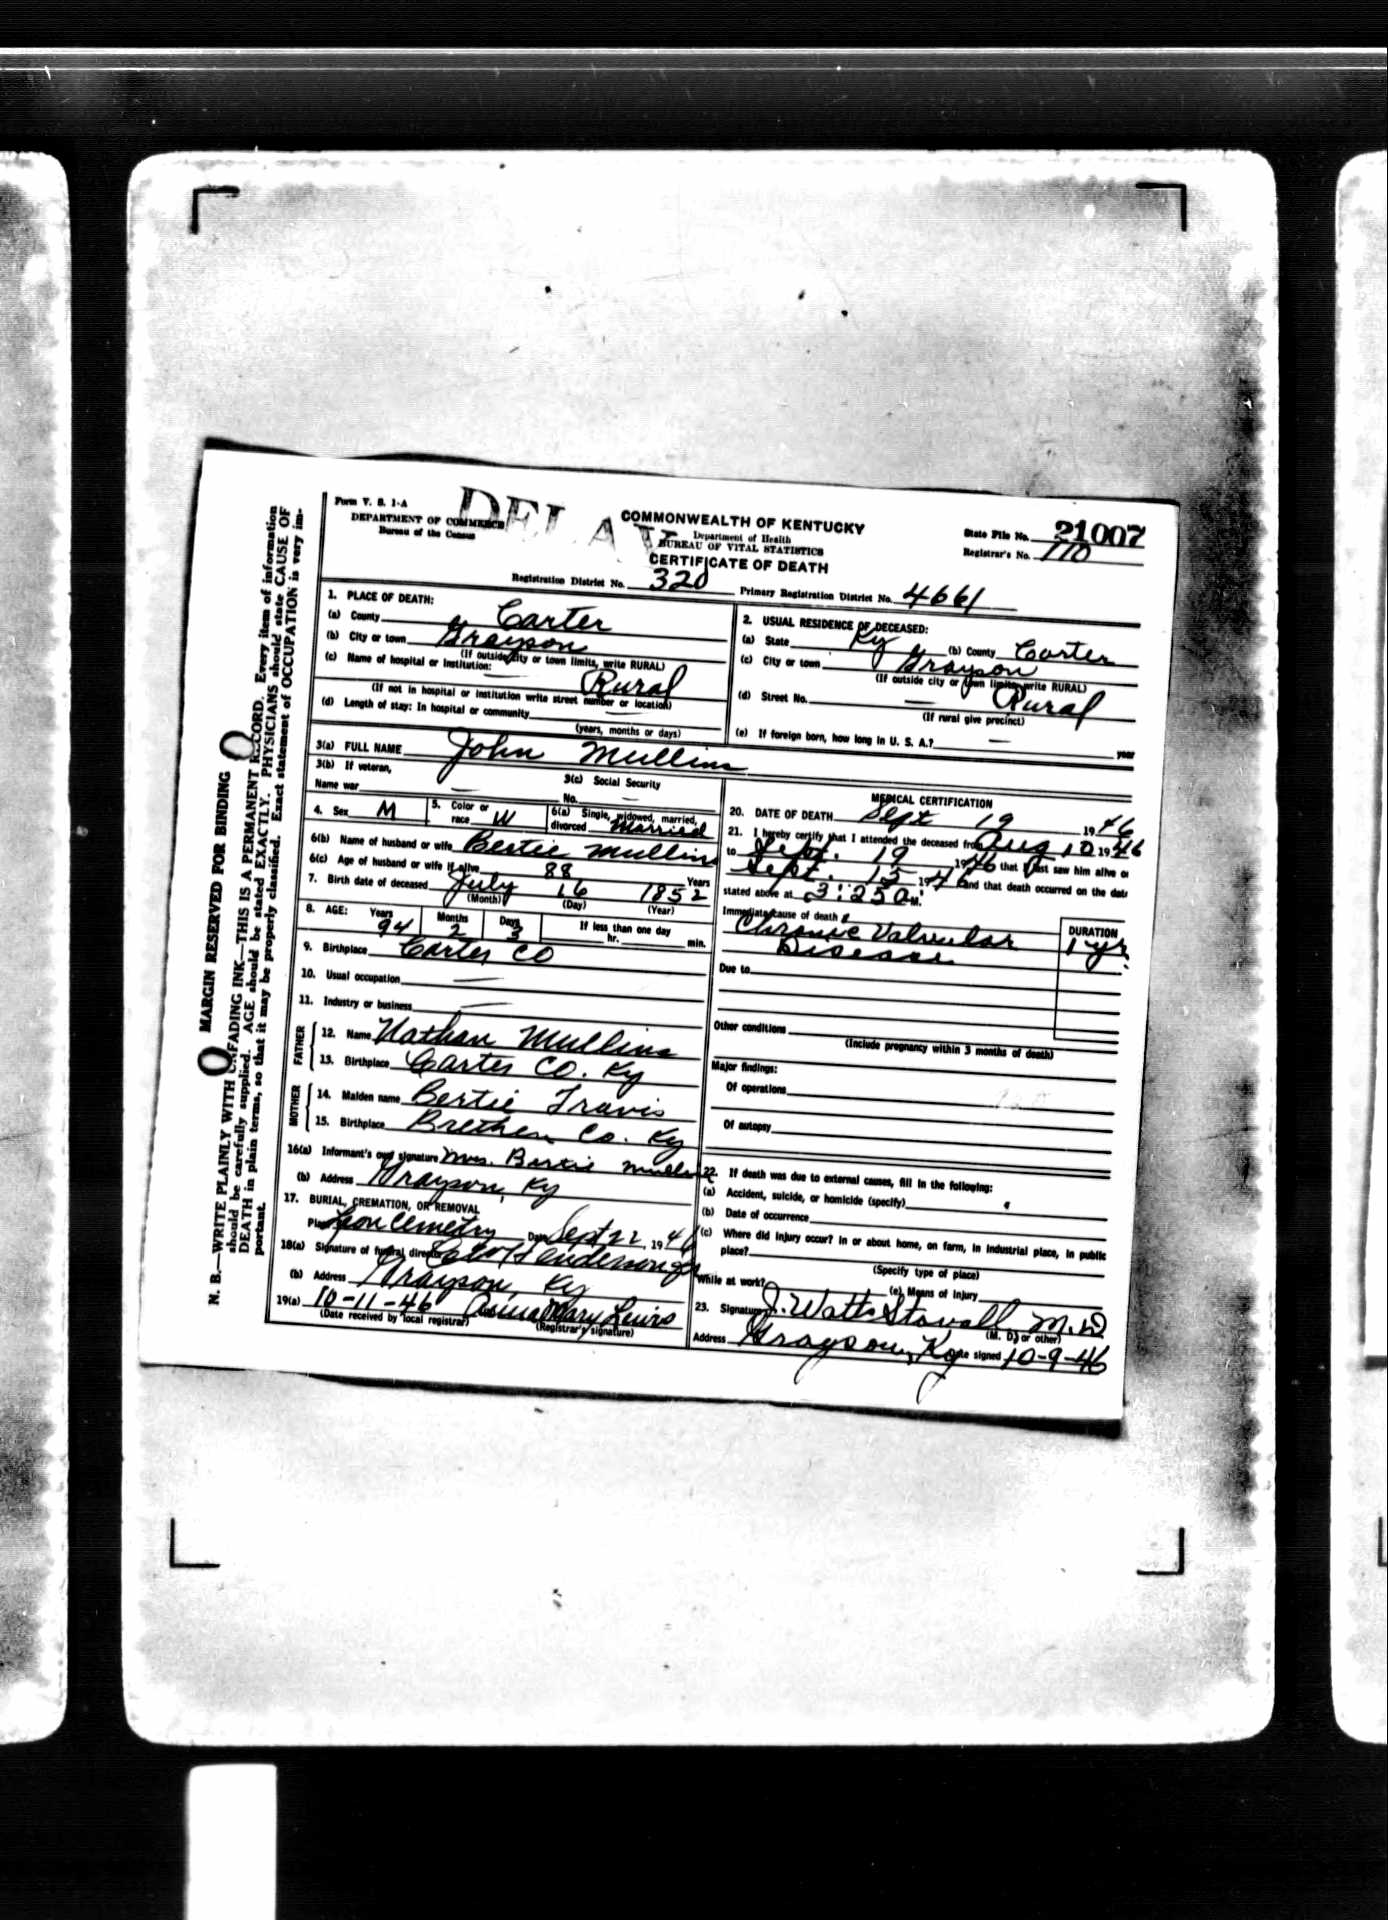 Form V. S. 1-A
DEPARTMENT OF COMMERCE
Bureau of the Census
DELAY
COMMONWEALTH OF KENTUCKY
Department of Health
BUREAU OF VITAL STATISTICS
CERTIFICATE OF DEATH
State File No. 21007
Registrar's No. 110
Registration District No. 320 Primary Registration District No. 4661
1. PLACE OF DEATH:
(a) County Carter
(b) City or town Grayson
(If outside city or town limits, write RURAL)
(c) Name of hospital or institution:
Rural
(If not in hospital or institution write street number or location)
(d) Length of stay: In hospital or community
(years, months or days)
2. USUAL RESIDENCE OF DECEASED:
(a) State Ky (b) County Carter
(c) City or town Grayson
(If outside city or town limits, write RURAL)
(d) Street No. — Rural
(If rural give precinct)
(e) If foreign born, how long in U. S. A.? — year
3(a) FULL NAME John Mullins
3(b) If veteran,
Name war —
3(c) Social Security
No. —
4. Sex M
5. Color or
race W
6(a) Single, widowed, married,
divorced Married
6(b) Name of husband or wife Bertie Mullins
6(c) Age of husband or wife if alive 88 Years
7. Birth date of deceased July 16 1852
(Month) (Day) (Year)
8. AGE: Years 94 Months 2 Days 3 If less than one day
hr. min.
9. Birthplace Carter CO
10. Usual occupation —
11. Industry or business —
FATHER
12. Name Nathan Mullins
13. Birthplace Carter CO. Ky
MOTHER
14. Maiden name Bertie Travis
15. Birthplace Brethen Co. Ky
16(a) Informant's own signature Mrs. Bertie Mullins
(b) Address Grayson, Ky
17. BURIAL, CREMATION, OR REMOVAL
Place Leon Cemetry Date Sept 22, 1946
18(a) Signature of funeral director
(b) Address Grayson, Ky
19(a) 10-11-46 Mary Lewis
(Date received by local registrar) (Registrar's signature)
MEDICAL CERTIFICATION
20. DATE OF DEATH Sept 19 1946
21. I hereby certify that I attended the deceased from Aug 10 1946
to Sept. 19 1946 that I last saw him alive on
Sept. 15 1946 and that death occurred on the date
stated above at 3:25 a. M.
Immediate cause of death
Chronic Valvular
Disease
DURATION
1 yr.
Due to
Other conditions
(Include pregnancy within 3 months of death)
Major findings:
Of operations
Of autopsy
22. If death was due to external causes, fill in the following:
(a) Accident, suicide, or homicide (specify)
(b) Date of occurrence
(c) Where did injury occur? In or about home, on farm, in industrial place, in public
place?
(Specify type of place)
While at work? (e) Means of injury
23. Signature J. Watts Stovall M.D
(M. D. or other)
Address Grayson, Ky Date signed 10-9-46
MARGIN RESERVED FOR BINDING
N. B.—WRITE PLAINLY WITH UNFADING INK—THIS IS A PERMANENT RECORD. Every item of information
should be carefully supplied. AGE should be stated EXACTLY. PHYSICIANS should state CAUSE OF
DEATH in plain terms, so that it may be properly classified. Exact statement of OCCUPATION is very im-
portant.